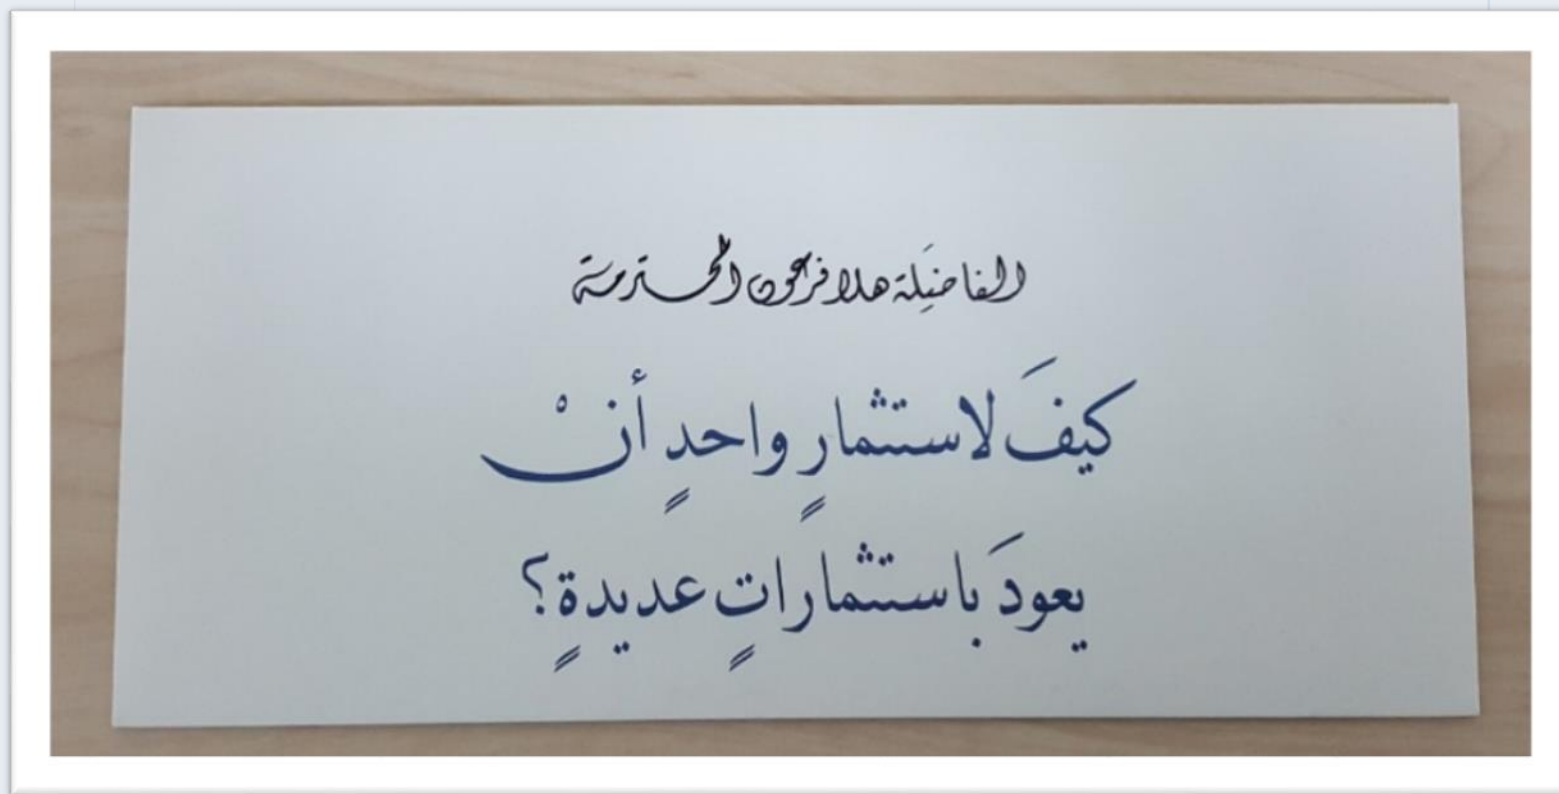 الفاضِلة هلا فرعون المحترمة
كيفَ لاستثمارٍ واحدٍ أنْ
يعودَ باستثماراتٍ عديدةٍ؟